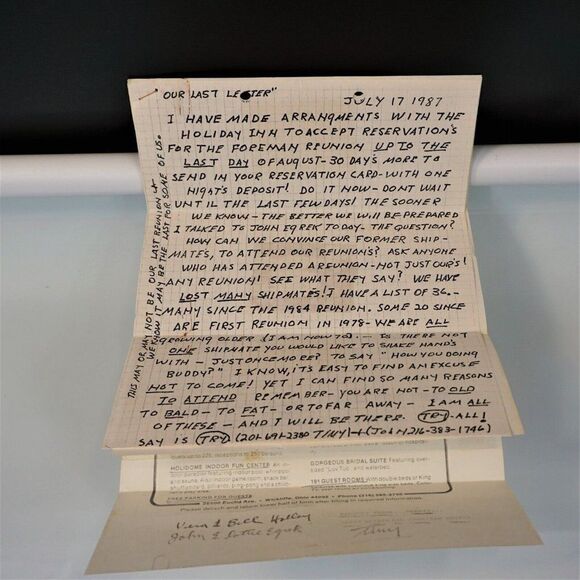 "OUR LAST LETTER"
JULY 17 1987
I HAVE MADE ARRANGMENTS WITH THE
HOLIDAY INN TO ACCEPT RESERVATION'S
FOR THE FOREMAN REUNION UP TO THE
LAST DAY OF AUGUST-30 DAY'S MORE TO
SEND IN YOUR RESERVATION CARD-WITH ONE
NIGHT'S DEPOSIT! DO IT NOW-DONT WAIT
UNTIL THE LAST FEW DAYS! THE SOONER
WE KNOW-THE BETTER WE WILL BE PREPARED
I TALKED TO JOHN EGREK TODAY-THE QUESTION?
HOW CAN WE CONVINCE OUR FORMER SHIP-
MATES, TO ATTEND OUR REUNION'S? ASK ANYONE
WHO HAS ATTENDED A REUNION-NOT JUST OUR'S!
ANY REUNION! SEE WHAT THEY SAY? WE HAVE
LOST MANY SHIPMATES! I HAVE A LIST OF 36.-
MANY SINCE THE 1984 REUNION. SOME 20 SINCE
ARE FIRST REUNION IN 1978-WE ARE ALL
GROWING OLDER (I AM NOW 70).- IS THERE NOT
ONE SHIPMATE YOU WOULD LIKE TO SHAKE HAND'S
WITH-JUST ONCE MORE? TO SAY "HOW YOU DOING
BUDDY?" I KNOW, IT'S EASY TO FIND AN EXCUSE
NOT TO COME! YET I CAN FIND SO MANY REASONS
TO ATTEND REMEMBER-YOU ARE NOT-TO OLD
TO BALD-TO FAT-OR TO FAR AWAY-I AM ALL
OF THESE-AND I WILL BE THERE. TRY-ALL!
SAY IS TRY (201-691-2380 TINY)-(JOHN 216-383-1746)
THIS MAY OR MAY NOT BE OUR LAST REUNION
WE KNOW IT MAY BE THE LAST FOR SOME OF US.
HOLIDOME INDOOR FUN CENTER
GORGEOUS BRIDAL SUITE Featuring
181 GUEST ROOMS With double beds or King
FREE PARKING FOR GUESTS
Euclid Ave. • Wickliffe, Ohio 44092 • Phone
Please detach and return lower half of form after filling in required information.
Vera & Bill
John & Egrek
Tiny